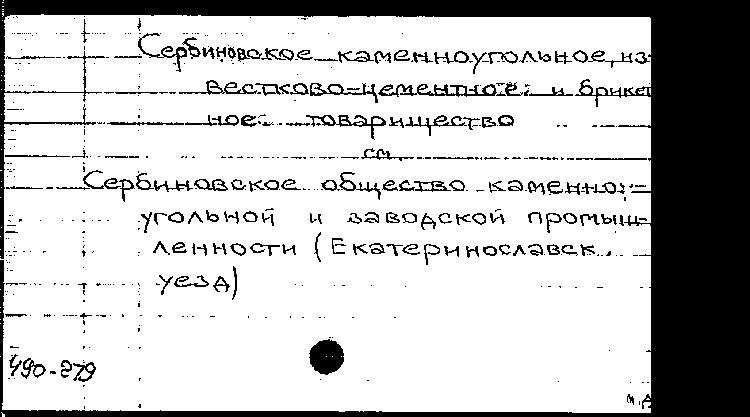 Сербиновское каменноугольное, из-
вестково-цементное и брикет
ное товарищество
см.
Сербиновское общество каменно-
угольной и заводской промыш-
ленности (Екатеринославск.
уезд)
490-279